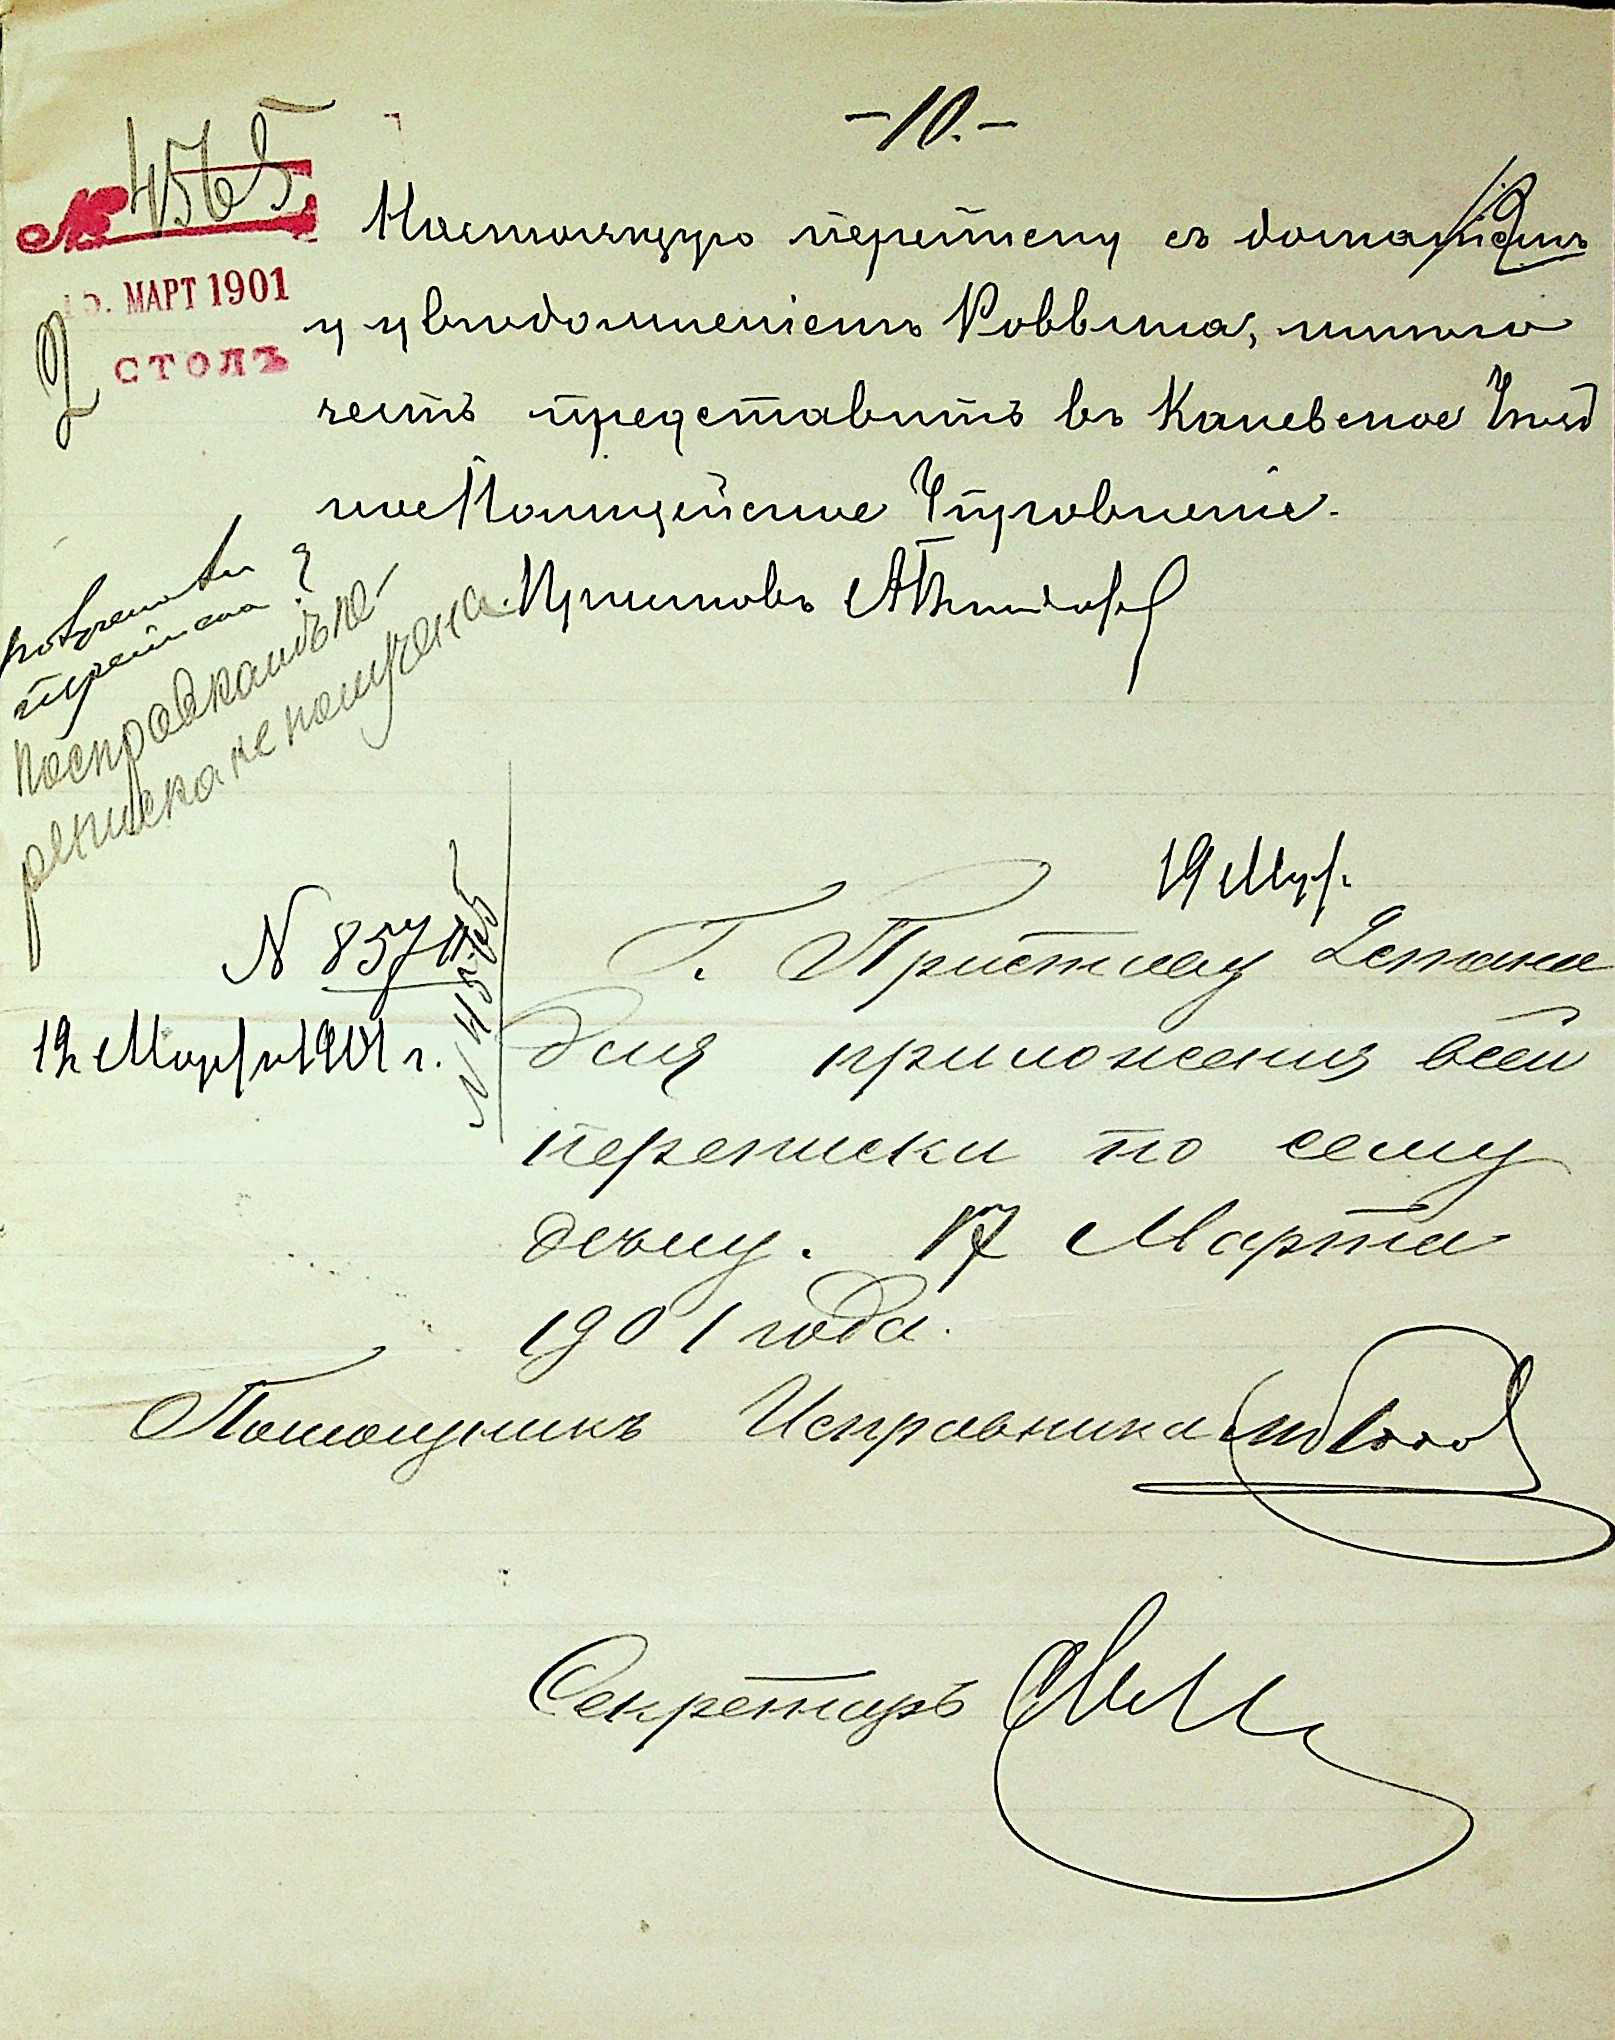 -10.-
№ 4565
МАРТ 1901
2 СТОЛЪ
Настоящую переписку съ дознаніемъ
и увѣдомленіемъ Раввина, имѣю
честь представить въ Каневское Уѣзд
ное Полицейское Управленіе.
Приставъ
переписка?
По справкамъ пе-
реписка не получена.
19 Мар.
N 857
12 Марта 1901 г.
Г. Приставу 2 стана
для приложенія всей
переписки по сему
дѣлу. 17 Марта
1901 года.
Помощникъ Исправника
Секретарь